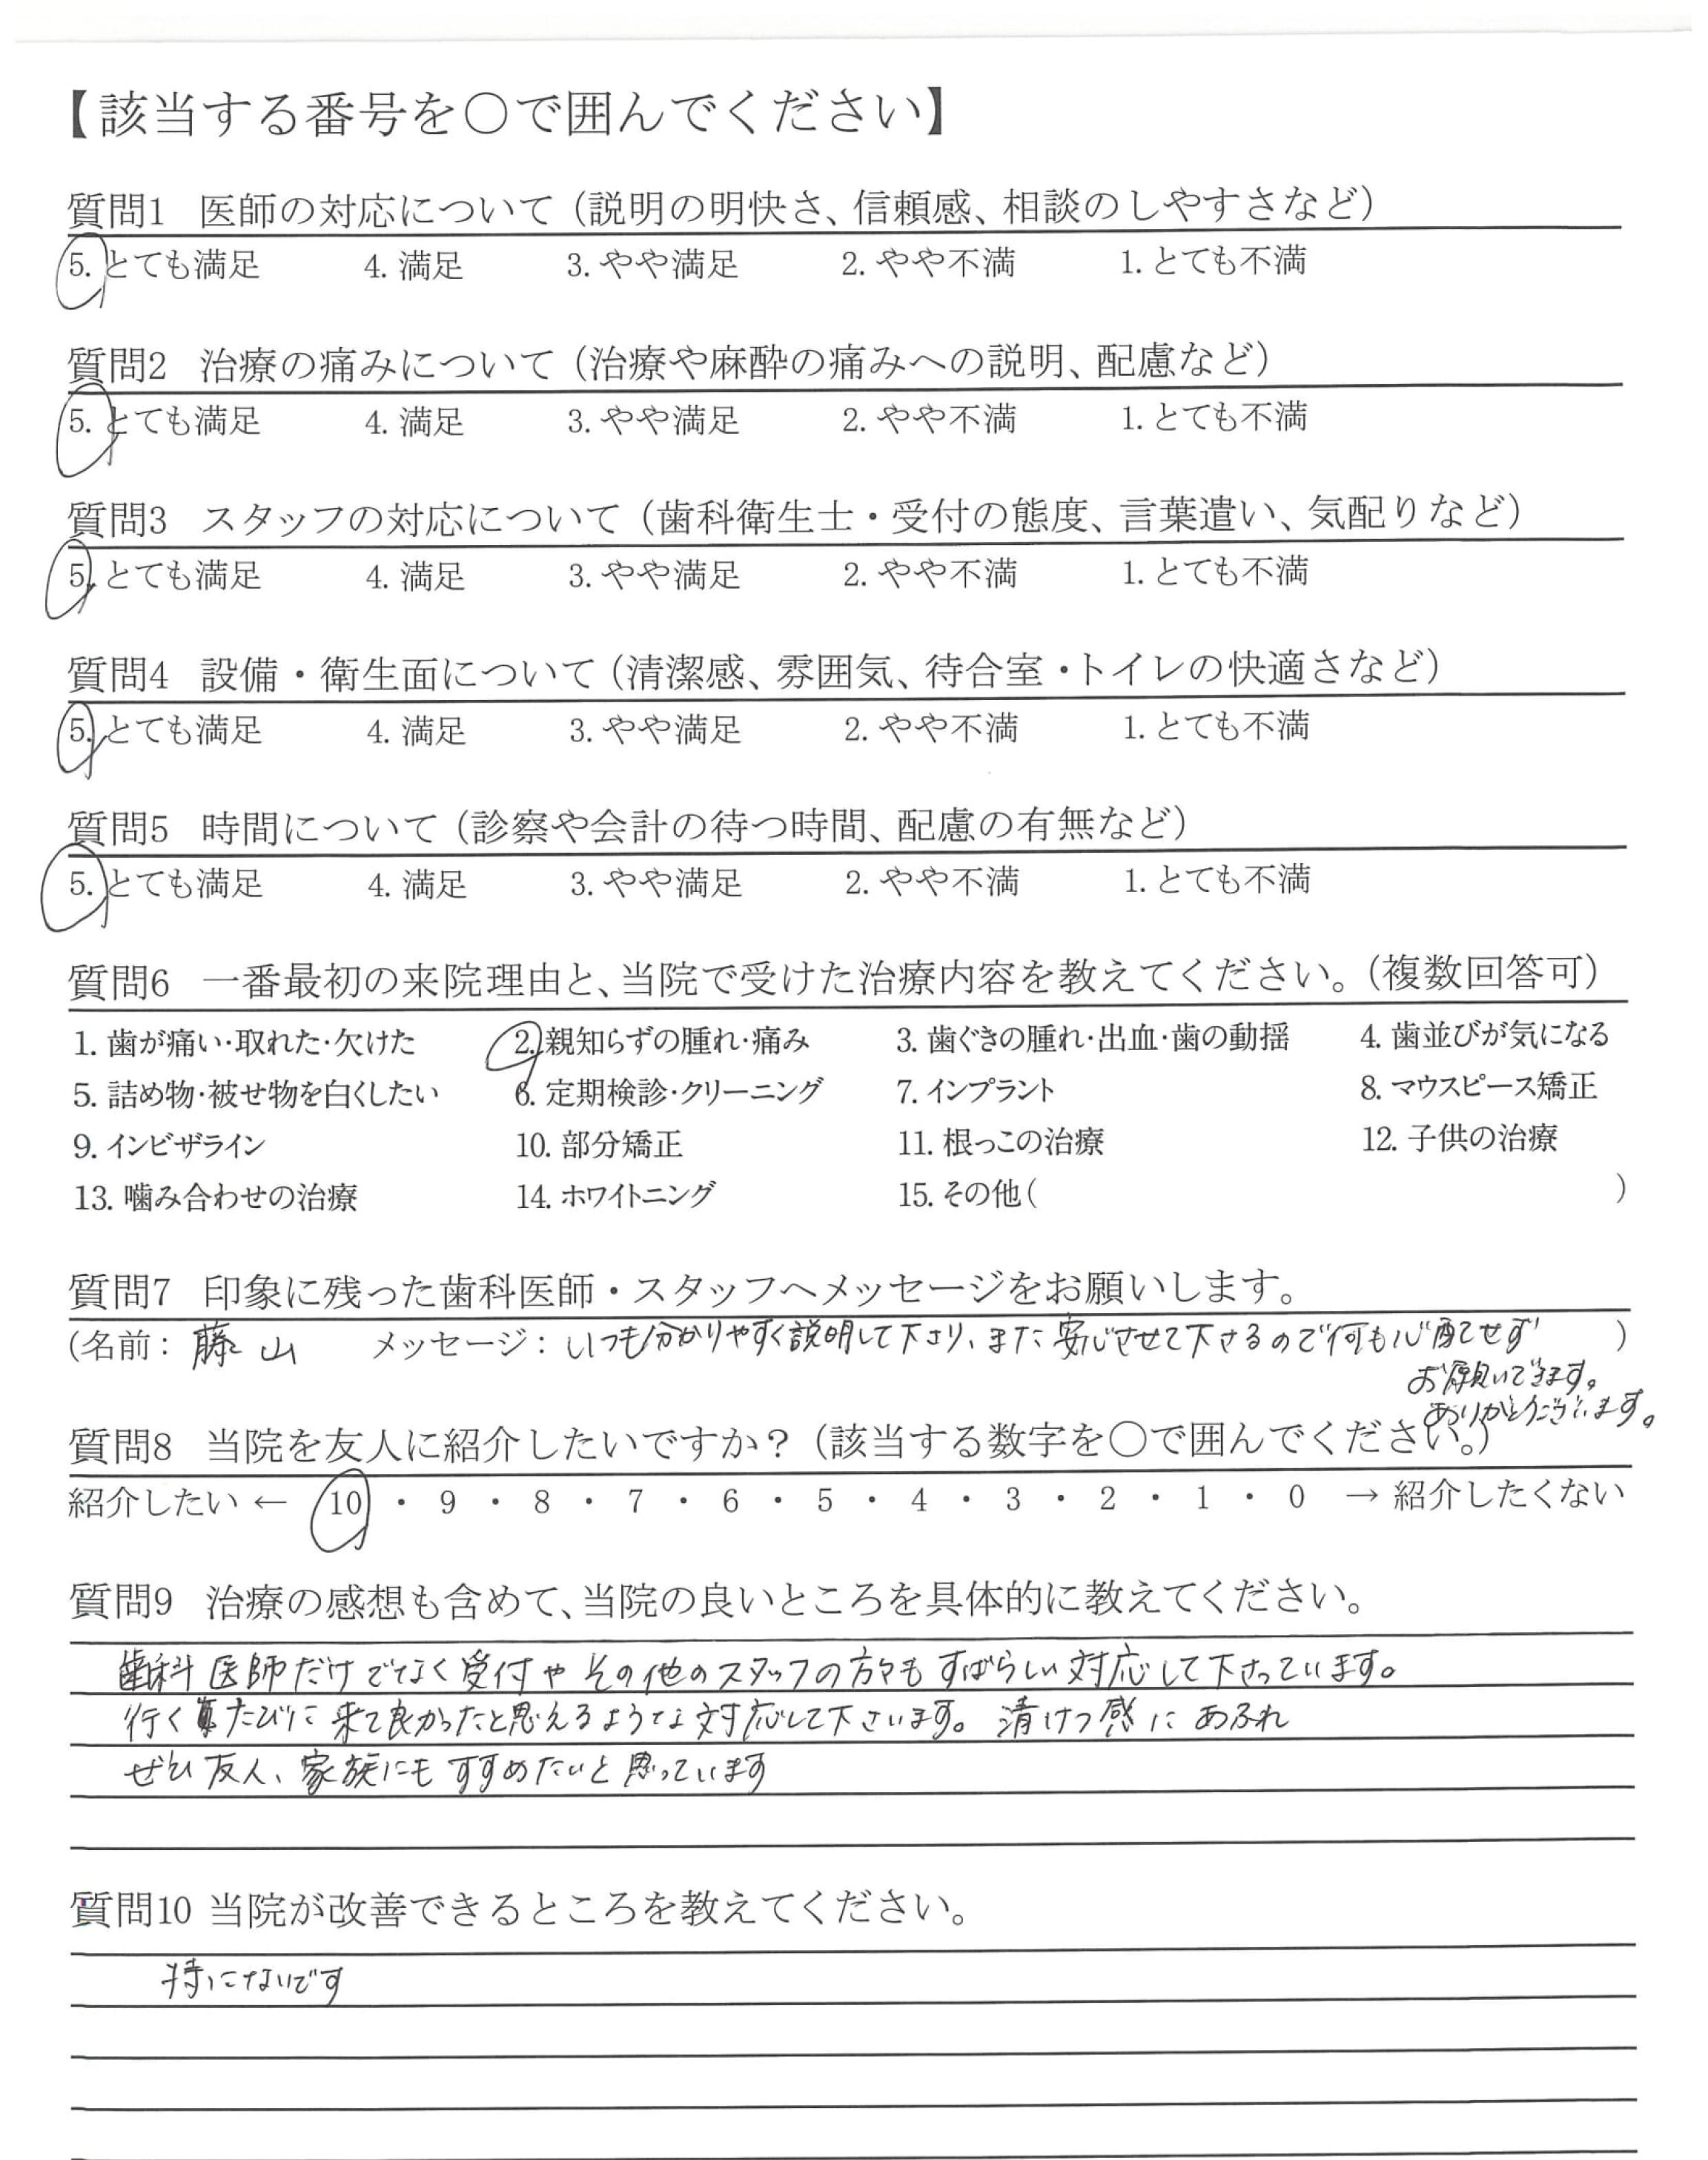 【該当する番号を○で囲んでください】
質問1 医師の対応について（説明の明快さ、信頼感、相談のしやすさなど）
5. とても満足 4. 満足 3. やや満足 2. やや不満 1. とても不満
質問2 治療の痛みについて（治療や麻酔の痛みへの説明、配慮など）
5. とても満足 4. 満足 3. やや満足 2. やや不満 1. とても不満
質問3 スタッフの対応について（歯科衛生士・受付の態度、言葉遣い、気配りなど）
5. とても満足 4. 満足 3. やや満足 2. やや不満 1. とても不満
質問4 設備・衛生面について（清潔感、雰囲気、待合室・トイレの快適さなど）
5. とても満足 4. 満足 3. やや満足 2. やや不満 1. とても不満
質問5 時間について（診察や会計の待つ時間、配慮の有無など）
5. とても満足 4. 満足 3. やや満足 2. やや不満 1. とても不満
質問6 一番最初の来院理由と、当院で受けた治療内容を教えてください。（複数回答可）
1. 歯が痛い・取れた・欠けた 2. 親知らずの腫れ・痛み 3. 歯ぐきの腫れ・出血・歯の動揺 4. 歯並びが気になる
5. 詰め物・被せ物を白くしたい 6. 定期検診・クリーニング 7. インプラント 8. マウスピース矯正
9. インビザライン 10. 部分矯正 11. 根っこの治療 12. 子供の治療
13. 噛み合わせの治療 14. ホワイトニング 15. その他（ ）
質問7 印象に残った歯科医師・スタッフへメッセージをお願いします。
（名前：藤山 メッセージ：いつも分かりやすく説明して下さり、また安心させて下さるので何も心配せず ）
お願いできます。
ありがとうございます。
質問8 当院を友人に紹介したいですか？（該当する数字を○で囲んでください。）
紹介したい ← 10 ・ 9 ・ 8 ・ 7 ・ 6 ・ 5 ・ 4 ・ 3 ・ 2 ・ 1 ・ 0 → 紹介したくない
質問9 治療の感想も含めて、当院の良いところを具体的に教えてください。
歯科医師だけでなく受付やその他のスタッフの方々もすばらしい対応して下さっています。
行くたびに来て良かったと思えるような対応して下さいます。清けつ感にあふれ
ぜひ友人、家族にもすすめたいと思っています
質問10 当院が改善できるところを教えてください。
特にないです